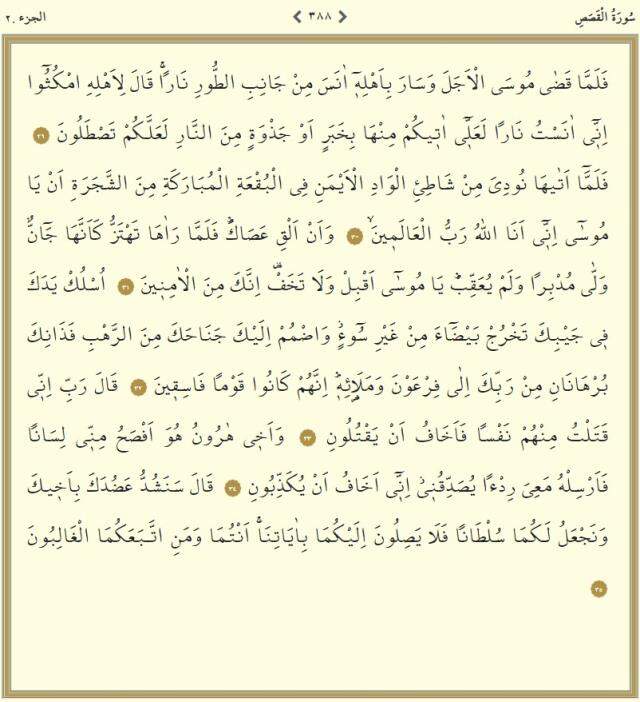 سُورَةُ الْقَصَصِ ❮ ٣٨٨ ❯ الجزء ٢٠
فَلَمَّا قَضٰى مُوسَى الْاَجَلَ وَسَارَ بِاَهْلِه۪ٓ اٰنَسَ مِنْ جَانِبِ الطُّورِ نَارًاۚ قَالَ لِاَهْلِهِ امْكُثُٓوا
اِنّ۪ٓي اٰنَسْتُ نَارًا لَعَلّ۪ٓي اٰت۪يكُمْ مِنْهَا بِخَبَرٍ اَوْ جَذْوَةٍ مِنَ النَّارِ لَعَلَّكُمْ تَصْطَلُونَ ٢٩
فَلَمَّٓا اَتٰيهَا نُودِيَ مِنْ شَاطِئِ الْوَادِ الْاَيْمَنِ فِي الْبُقْعَةِ الْمُبَارَكَةِ مِنَ الشَّجَرَةِ اَنْ يَا
مُوسٰٓى اِنّ۪ٓي اَنَا اللّٰهُ رَبُّ الْعَالَم۪ينَۙ ٣٠ وَاَنْ اَلْقِ عَصَاكَۜ فَلَمَّا رَاٰهَا تَهْتَزُّ كَاَنَّهَا جَٓانٌّ
وَلّٰى مُدْبِرًا وَلَمْ يُعَقِّبْۜ يَا مُوسٰٓى اَقْبِلْ وَلَا تَخَفْ۠ اِنَّكَ مِنَ الْاٰمِن۪ينَ ٣١ اُسْلُكْ يَدَكَ
ف۪ي جَيْبِكَ تَخْرُجْ بَيْضَٓاءَ مِنْ غَيْرِ سُٓوءٍۘ وَاضْمُمْ اِلَيْكَ جَنَاحَكَ مِنَ الرَّهْبِ فَذَانِكَ
بُرْهَانَانِ مِنْ رَبِّكَ اِلٰى فِرْعَوْنَ وَمَلَا۬ئِه۪ۜ اِنَّهُمْ كَانُوا قَوْمًا فَاسِق۪ينَ ٣٢ قَالَ رَبِّ اِنّ۪ي
قَتَلْتُ مِنْهُمْ نَفْسًا فَاَخَافُ اَنْ يَقْتُلُونِ ٣٣ وَاَخ۪ي هٰرُونُ هُوَ اَفْصَحُ مِنّ۪ي لِسَانًا
فَاَرْسِلْهُ مَعِيَ رِدْءًا يُصَدِّقُن۪يۘ اِنّ۪ٓي اَخَافُ اَنْ يُكَذِّبُونِ ٣٤ قَالَ سَنَشُدُّ عَضُدَكَ بِاَخ۪يكَ
وَنَجْعَلُ لَكُمَا سُلْطَانًا فَلَا يَصِلُونَ اِلَيْكُمَا بِاٰيَاتِنَاۚ اَنْتُمَا وَمَنِ اتَّبَعَكُمَا الْغَالِبُونَ
٣٥